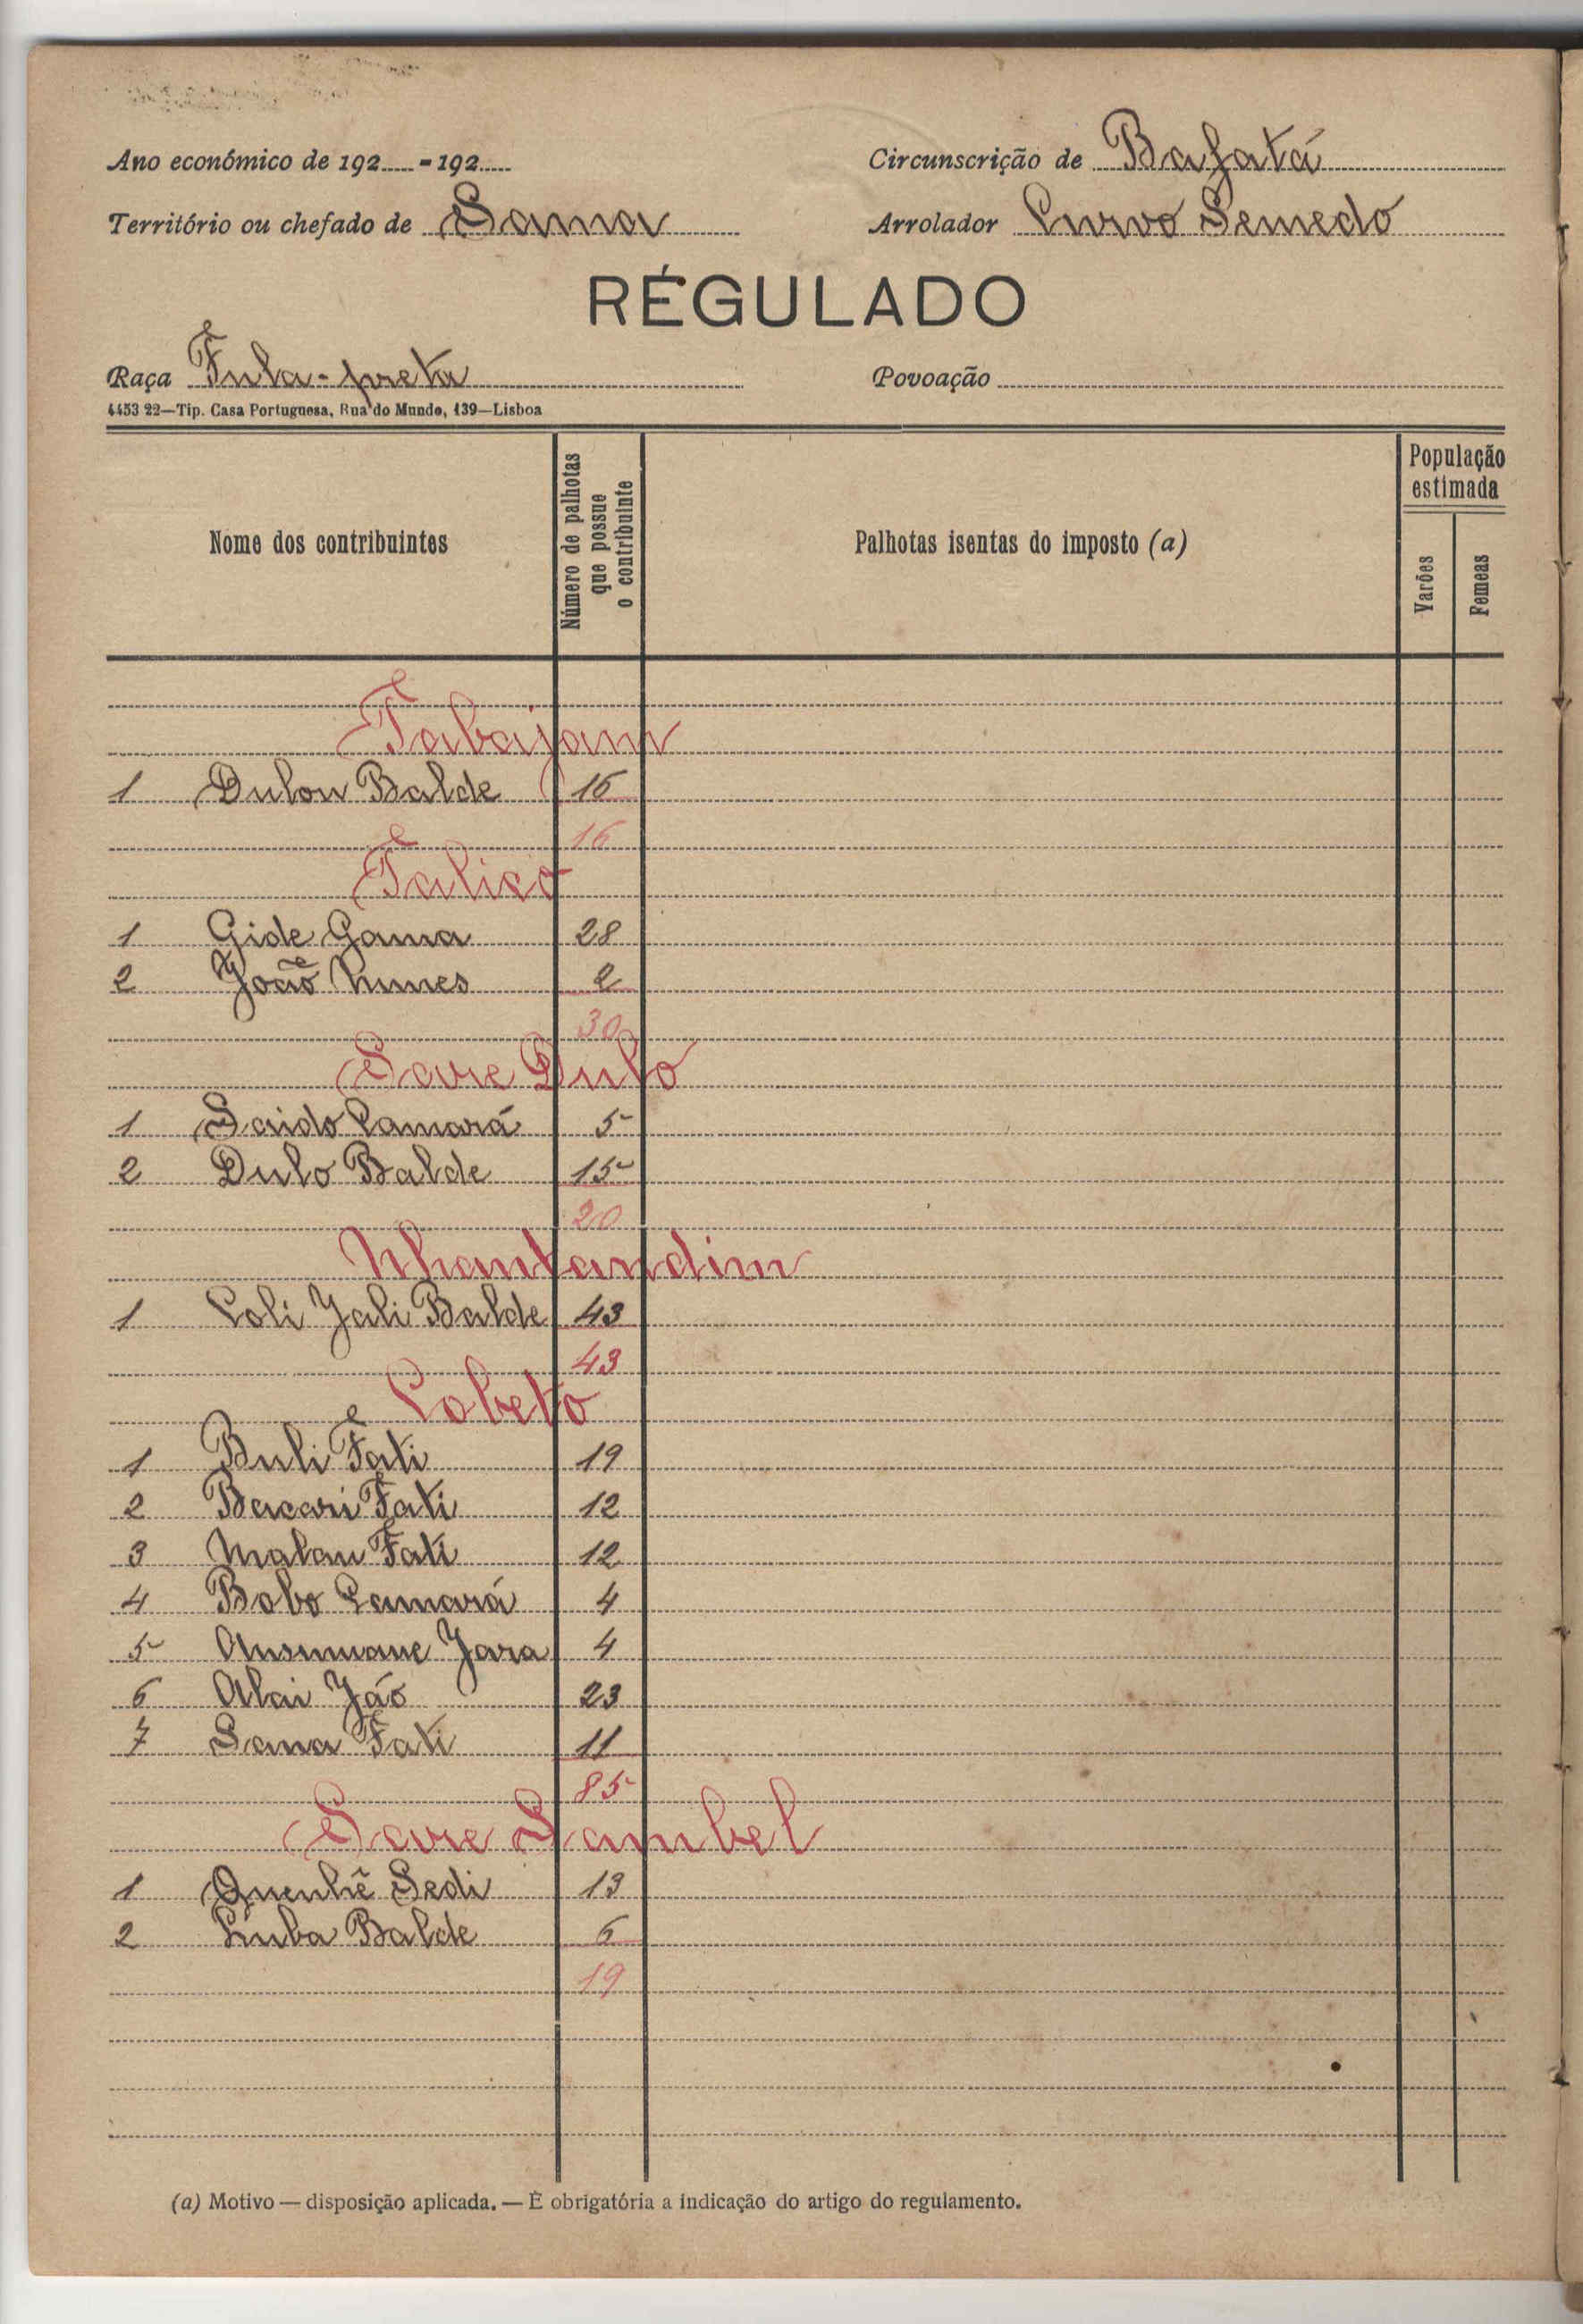 Ano económico de 192.....-192.....
Circunscrição de Bafatá
Território ou chefado de Sama
Arrolador Curvo Semedo
RÉGULADO
Raça Fula-preta
Povoação
4453 22—Tip. Casa Portuguesa, Rua do Mundo, 139—Lisboa
Nome dos contribuintes
Número de palhotas que possue o contribuinte
Palhotas isentas do imposto (a)
População estimada
Varões
Femeas
Tabajam
1 Dulou Balde 16
16
Talico
1 Gide Gama 28
2 João Nunes 2
30
Sare Dulo
1 Saido Camará 5
2 Dulo Balde 15
20
Nhantandim
1 Coli Jali Balde 43
43
Cobeto
1 Buli Fati 19
2 Bacari Fati 12
3 Malau Fati 12
4 Bobo Camará 4
5 Ansumane Jara 4
6 Alai Jáo 23
7 Sana Fati 11
85
Sare Sambel
1 Quenhê Sedi 13
2 Cumba Balde 6
19
(a) Motivo — disposição aplicada. — É obrigatória a indicação do artigo do regulamento.